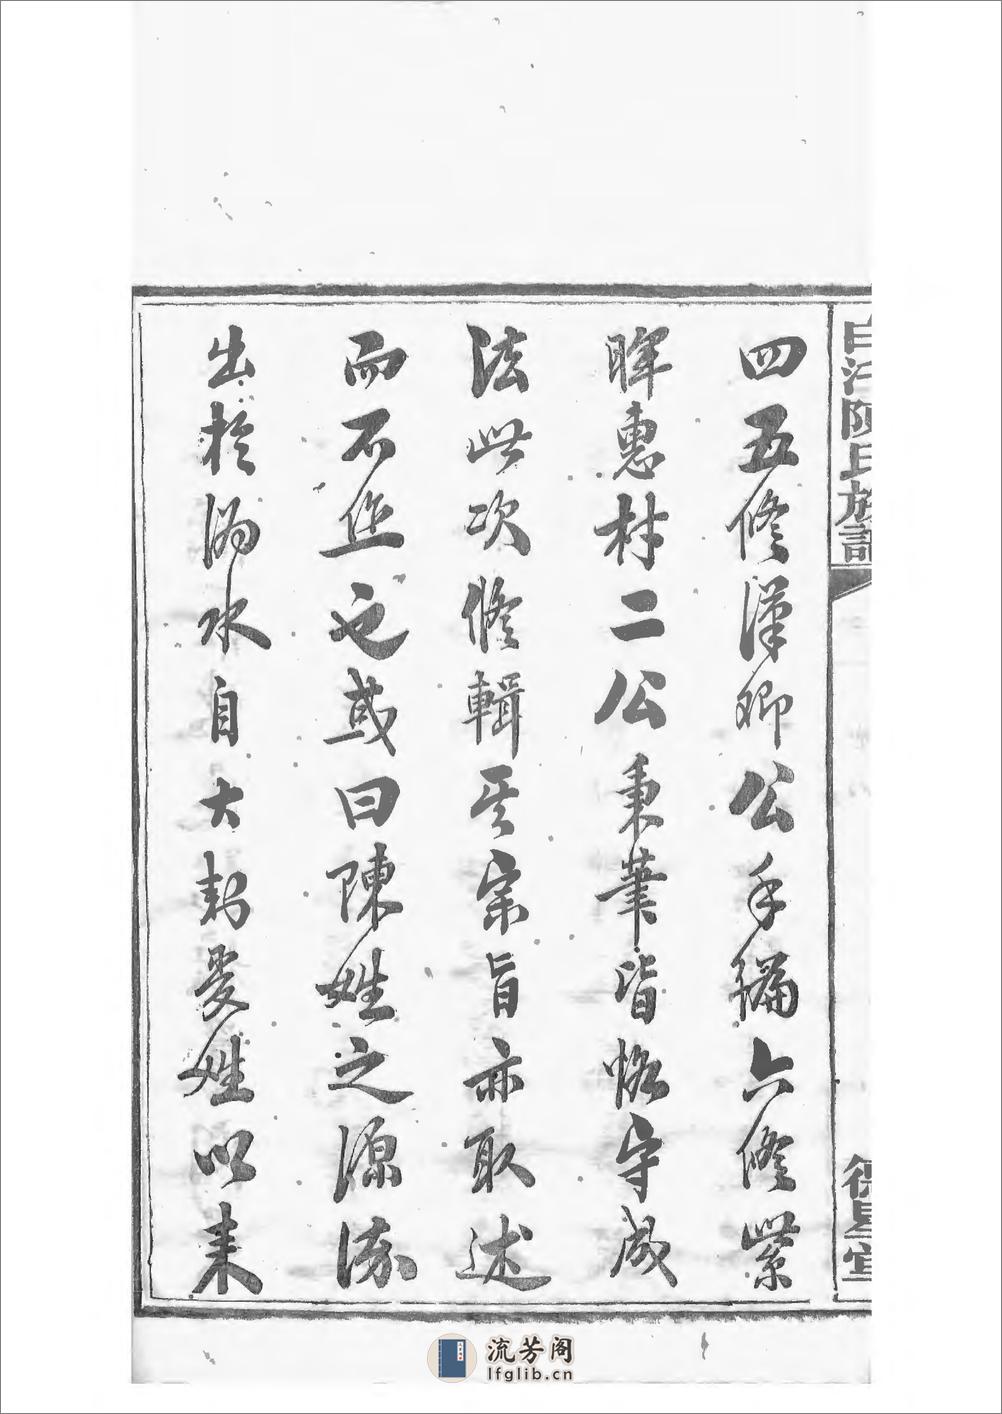 四五修漢卿公手編六修紫
暉惠村二公秉筆皆恪守成
法此次修輯其宗旨亦取述
而不作也或曰陳姓之源流
出於溈水自大封受姓以來
白江陳氏族譜
德星堂
流芳阁
lfglib.cn